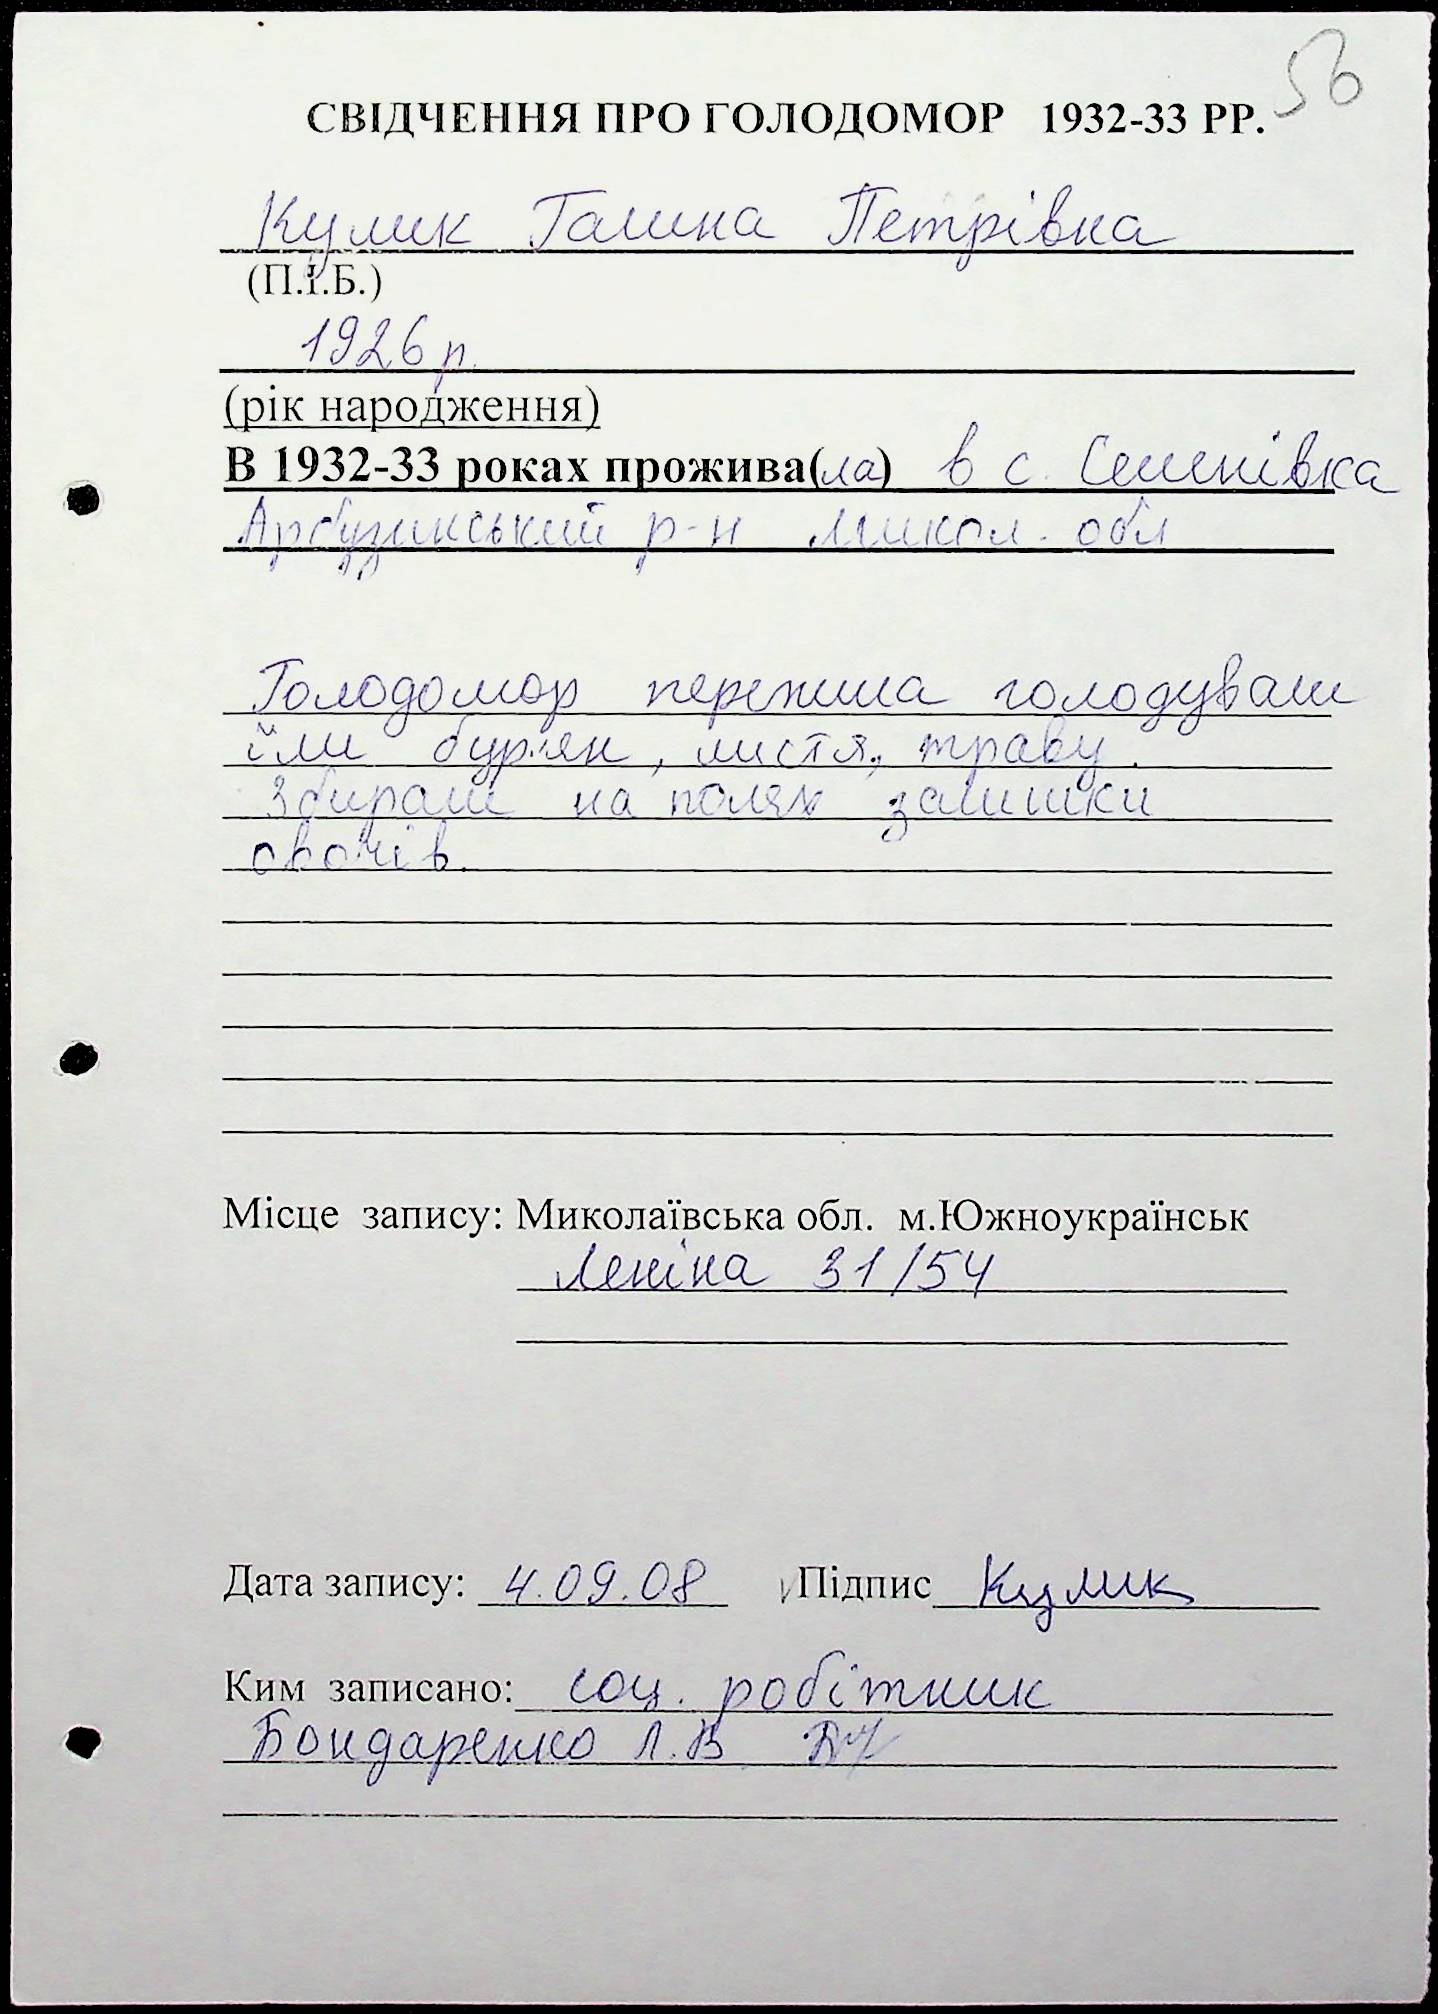 56
СВІДЧЕННЯ ПРО ГОЛОДОМОР 1932-33 РР.
Кулик Галина Петрівка
(П.І.Б.)
1926 р.
(рік народження)
В 1932-33 роках прожива(ла) в с. Семенівка
Арбузинський р-н Микол. обл
Голодомор пережила голодували
їли бур'ян, листя, траву.
Збирали на полях залишки
овочів.
Місце запису: Миколаївська обл. м.Южноукраїнськ
Леніна 31/54
Дата запису: 4.09.08 Підпис Кулик
Ким записано: соц. робітник
Бондаренко Л.В